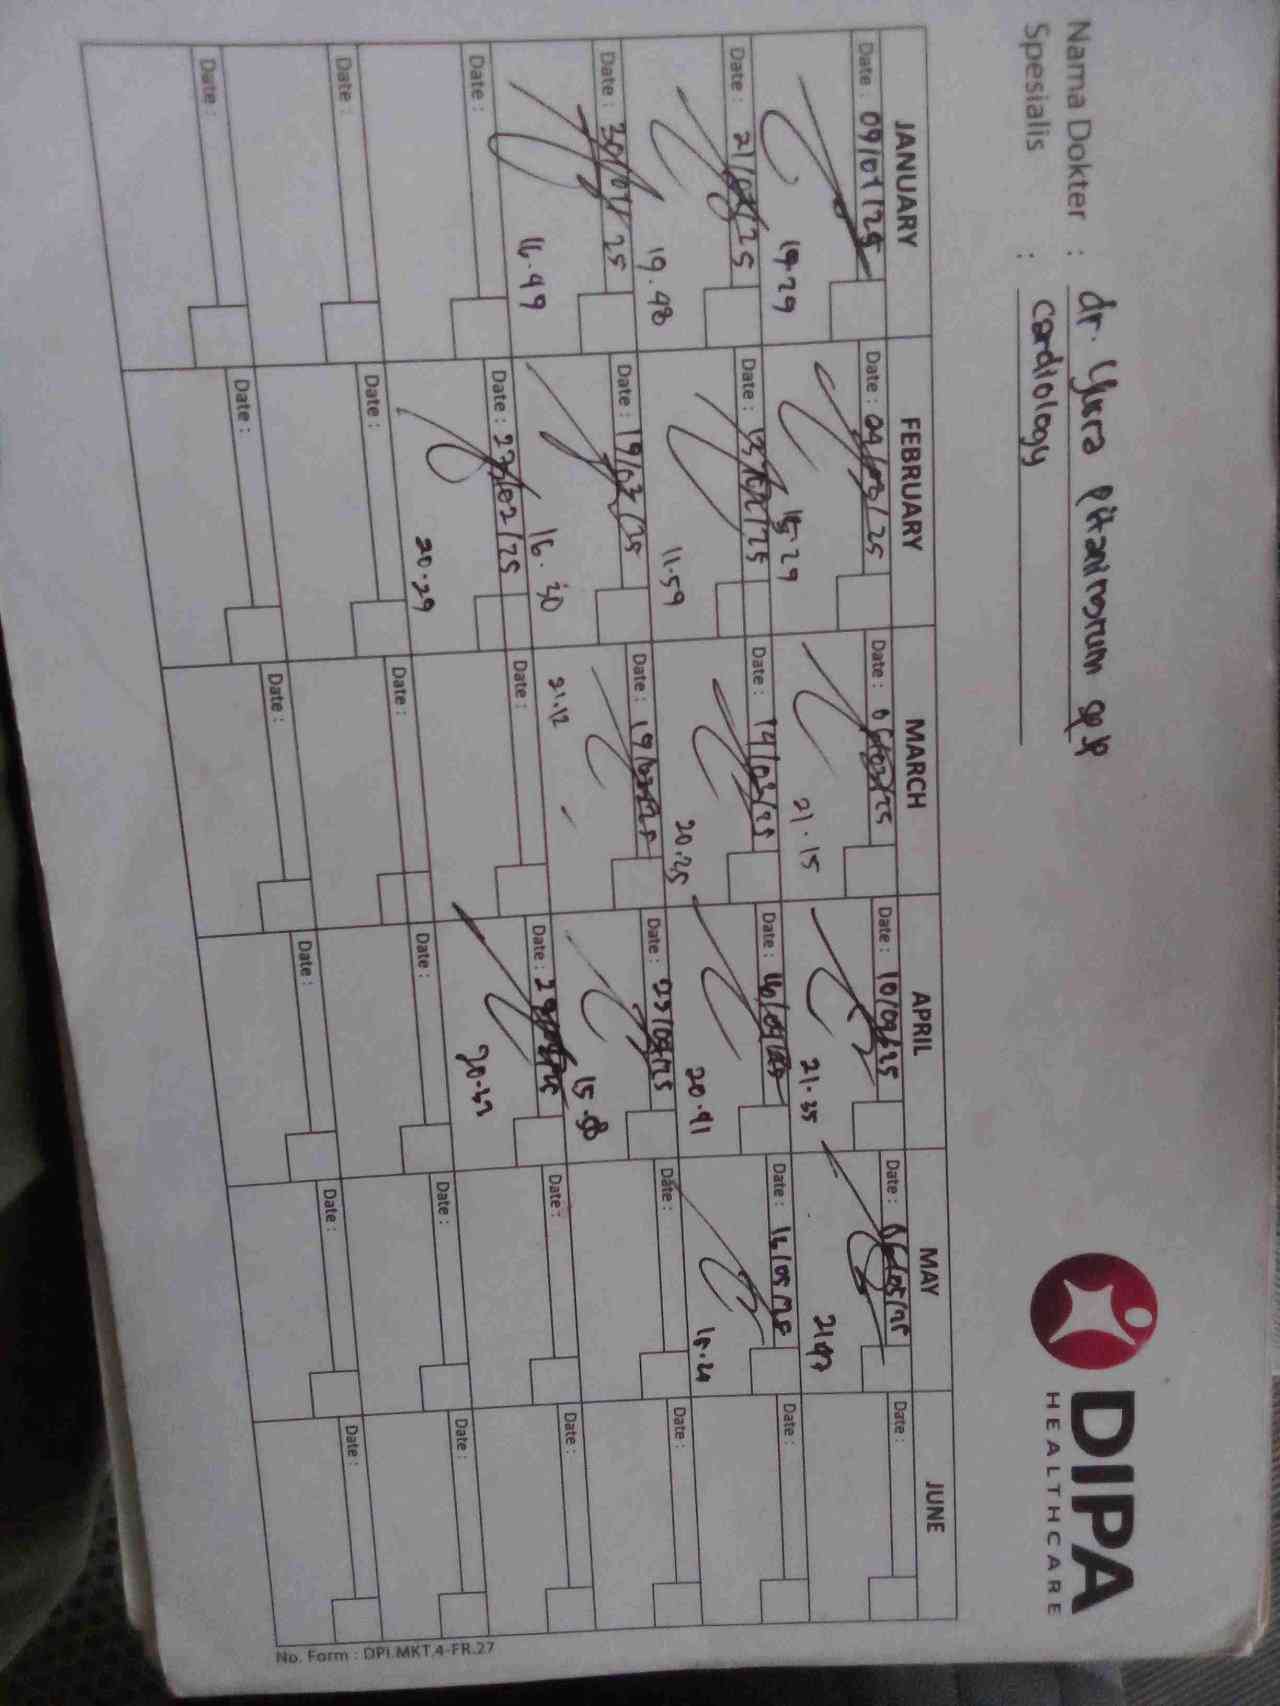 Nama Dokter : dr. Yusra Pitaningrum Sp.JP
Spesialis : cardiology
DIPA
HEALTHCARE
JANUARY FEBRUARY MARCH APRIL MAY JUNE
Date : 09/01/25 Date : Date : 06/03/25 Date : 10/04/25 Date : 06/05/25 Date :
19.29 21.15 21.35
Date : Date : 13/02/25 Date : 14/03/25 Date : 16/04/25 Date : 14/05/25 Date :
19.48 11.59 20.25 20.41
Date : 30/01/25 Date : 19/02/25 Date : 19/03/25 Date : 23/04/25 Date : Date :
16.49 16.30 21.12
Date : Date : 27/02/25 Date : Date : 29/04/25 Date : Date :
20.29
Date : Date : Date : Date : Date : Date :
Date : Date : Date : Date : Date : Date :
No. Form : DPI.MKT.4-FR.27